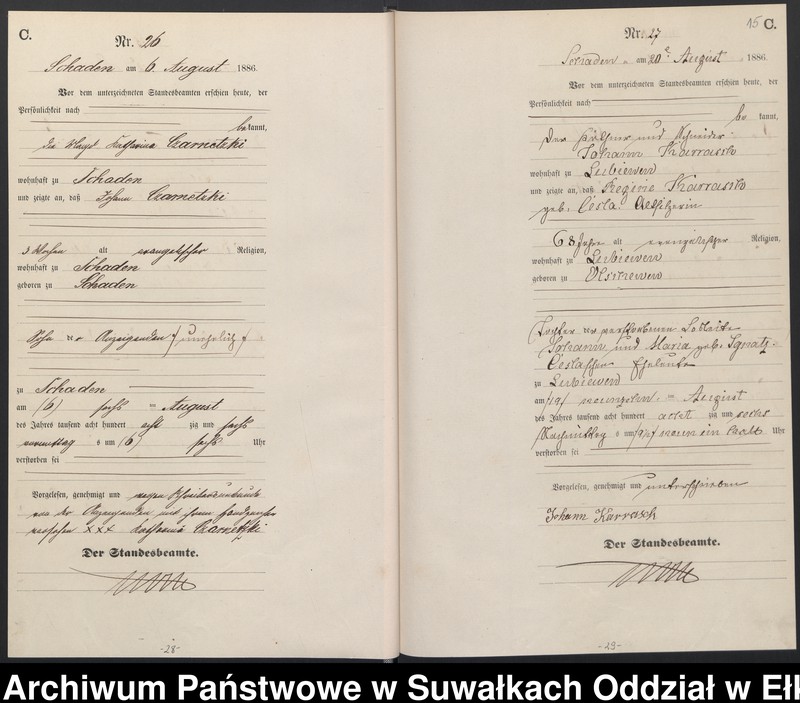 C.
Nr. 26
Schaden am 6. August 1886.
Vor dem unterzeichneten Standesbeamten erschien heute, der
Persönlichkeit nach
bekannt,
die Magd Katharina Czarnetzki
wohnhaft zu Schaden
und zeigte an, daß Johann Czarnetzki
3 Wochen alt evangelischer Religion,
wohnhaft zu Schaden
geboren zu Schaden
Sohn der Anzeigenden (unehelich)
zu Schaden
am (6) sechs ten August
des Jahres tausend acht hundert acht zig und sechs
vormittag s um (6) sechs Uhr
verstorben sei
Vorgelesen, genehmigt und wegen Schreibensunkunde
von der Anzeigenden mit ihrem Handzeichen
versehen XXX Katharina Czarnetzki
Der Standesbeamte.
-28-
15 C.
Nr. 27
Schaden am 20 August 1886.
Vor dem unterzeichneten Standesbeamten erschien heute, der
Persönlichkeit nach
be kannt,
Der und Schneider
Johann Karrasch
wohnhaft zu Lubiewen
und zeigte an, daß Regine Karrasch
geb. Ciesla
68 Jahre alt evangelischer Religion,
wohnhaft zu Lubiewen
geboren zu
Tochter der verstorbenen Losleute
Johann und Maria geb. Ignatz
Cieslaschen Eheleute
zu Lubiewen
am (19) neunzehn ten August
des Jahres tausend acht hundert acht zig und sechs
Nachmittag s um (9½) neun ein halb Uhr
verstorben sei
Vorgelesen, genehmigt und unterschrieben
Johann Karrasch
Der Standesbeamte.
-29-
Archiwum Państwowe w Suwałkach Oddział w Ełk